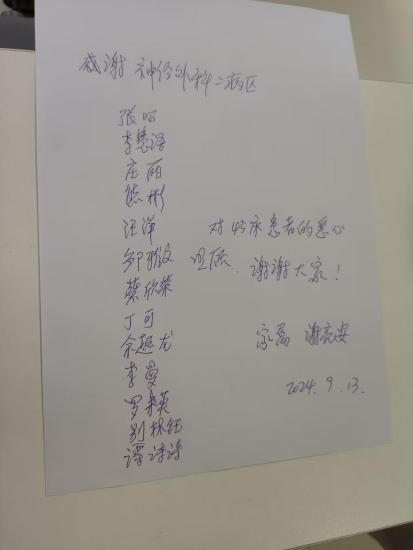 感谢 神经外科二病区
张
李慧语
庄丽
熊彬
汪洋 对45床患者的悉心
邹 照顾、谢谢大家！
蔡欣荣
丁可
余超龙
李曼
罗来英
别林钰
谭诗诗
家属 谢亮安
2024.9.13.